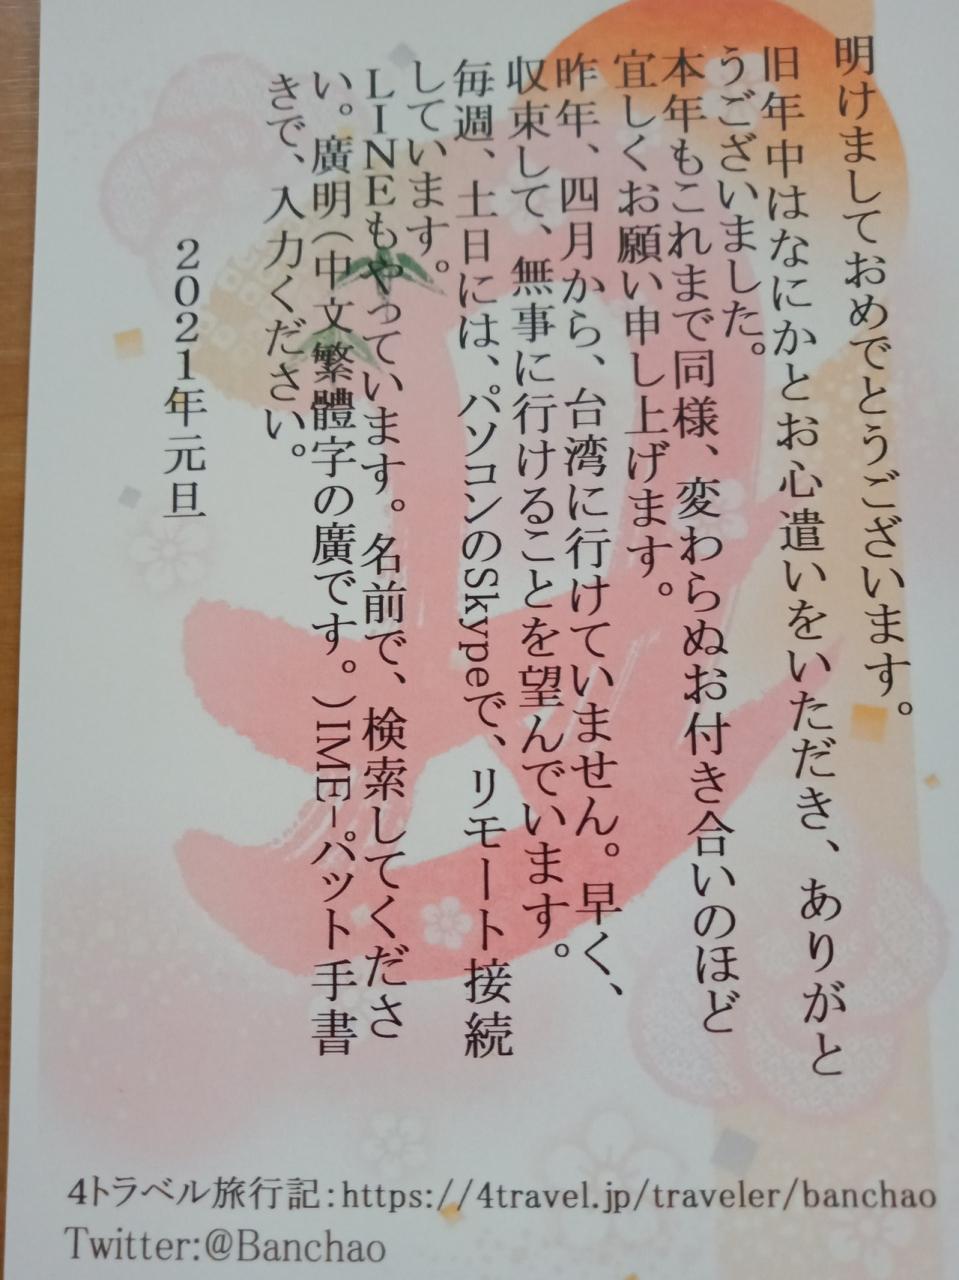 明けましておめでとうございます。
旧年中はなにかとお心遣いをいただき、ありがと
うございました。
本年もこれまで同様、変わらぬお付き合いのほど
宜しくお願い申し上げます。
昨年、四月から、台湾に行けていません。早く、
収束して、無事に行けることを望んでいます。
毎週、土日には、パソコンのSkypeで、リモート接続
しています。
LINEもやっています。名前で、検索してくださ
い。廣明(中文繁體字の廣です。)IME-パット手書
きで、入力ください。
2021年元旦
4トラベル旅行記:https://4travel.jp/traveler/banchao
Twitter:@Banchao